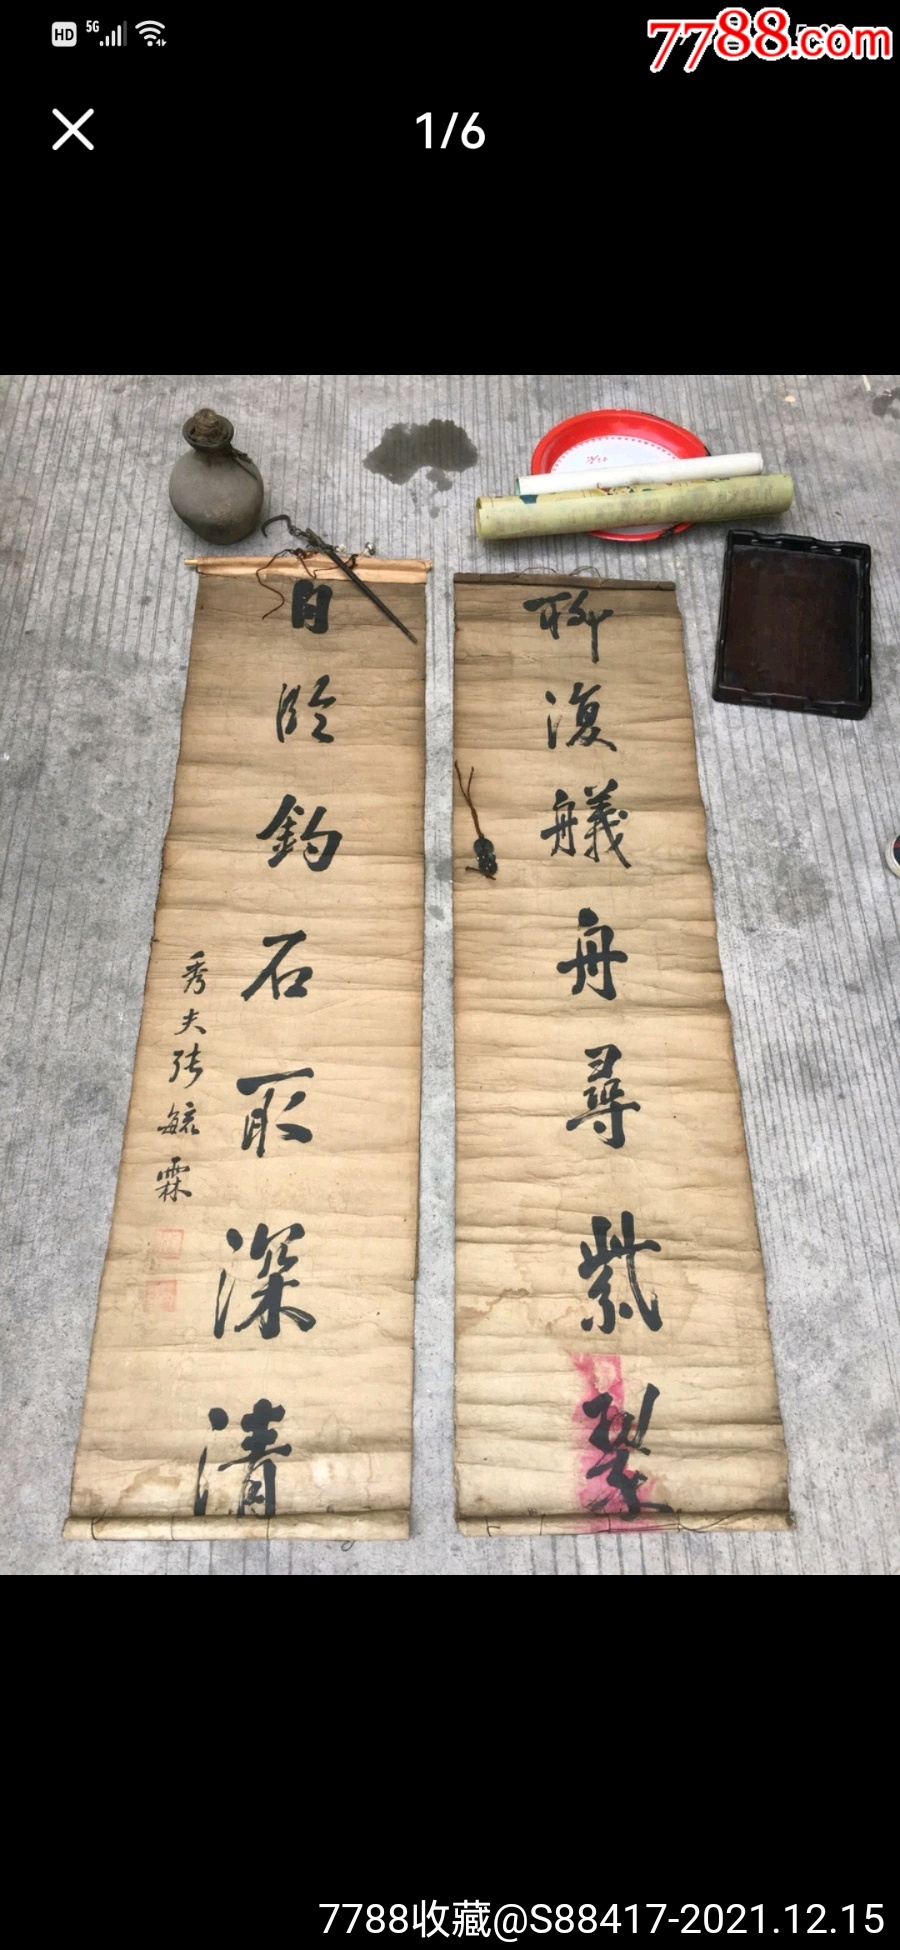 HD 5G
7788.com
1/6
聊復艤舟尋紫翠
自臨釣石取深清
秀夫張毓霖
7788收藏@S88417-2021.12.15